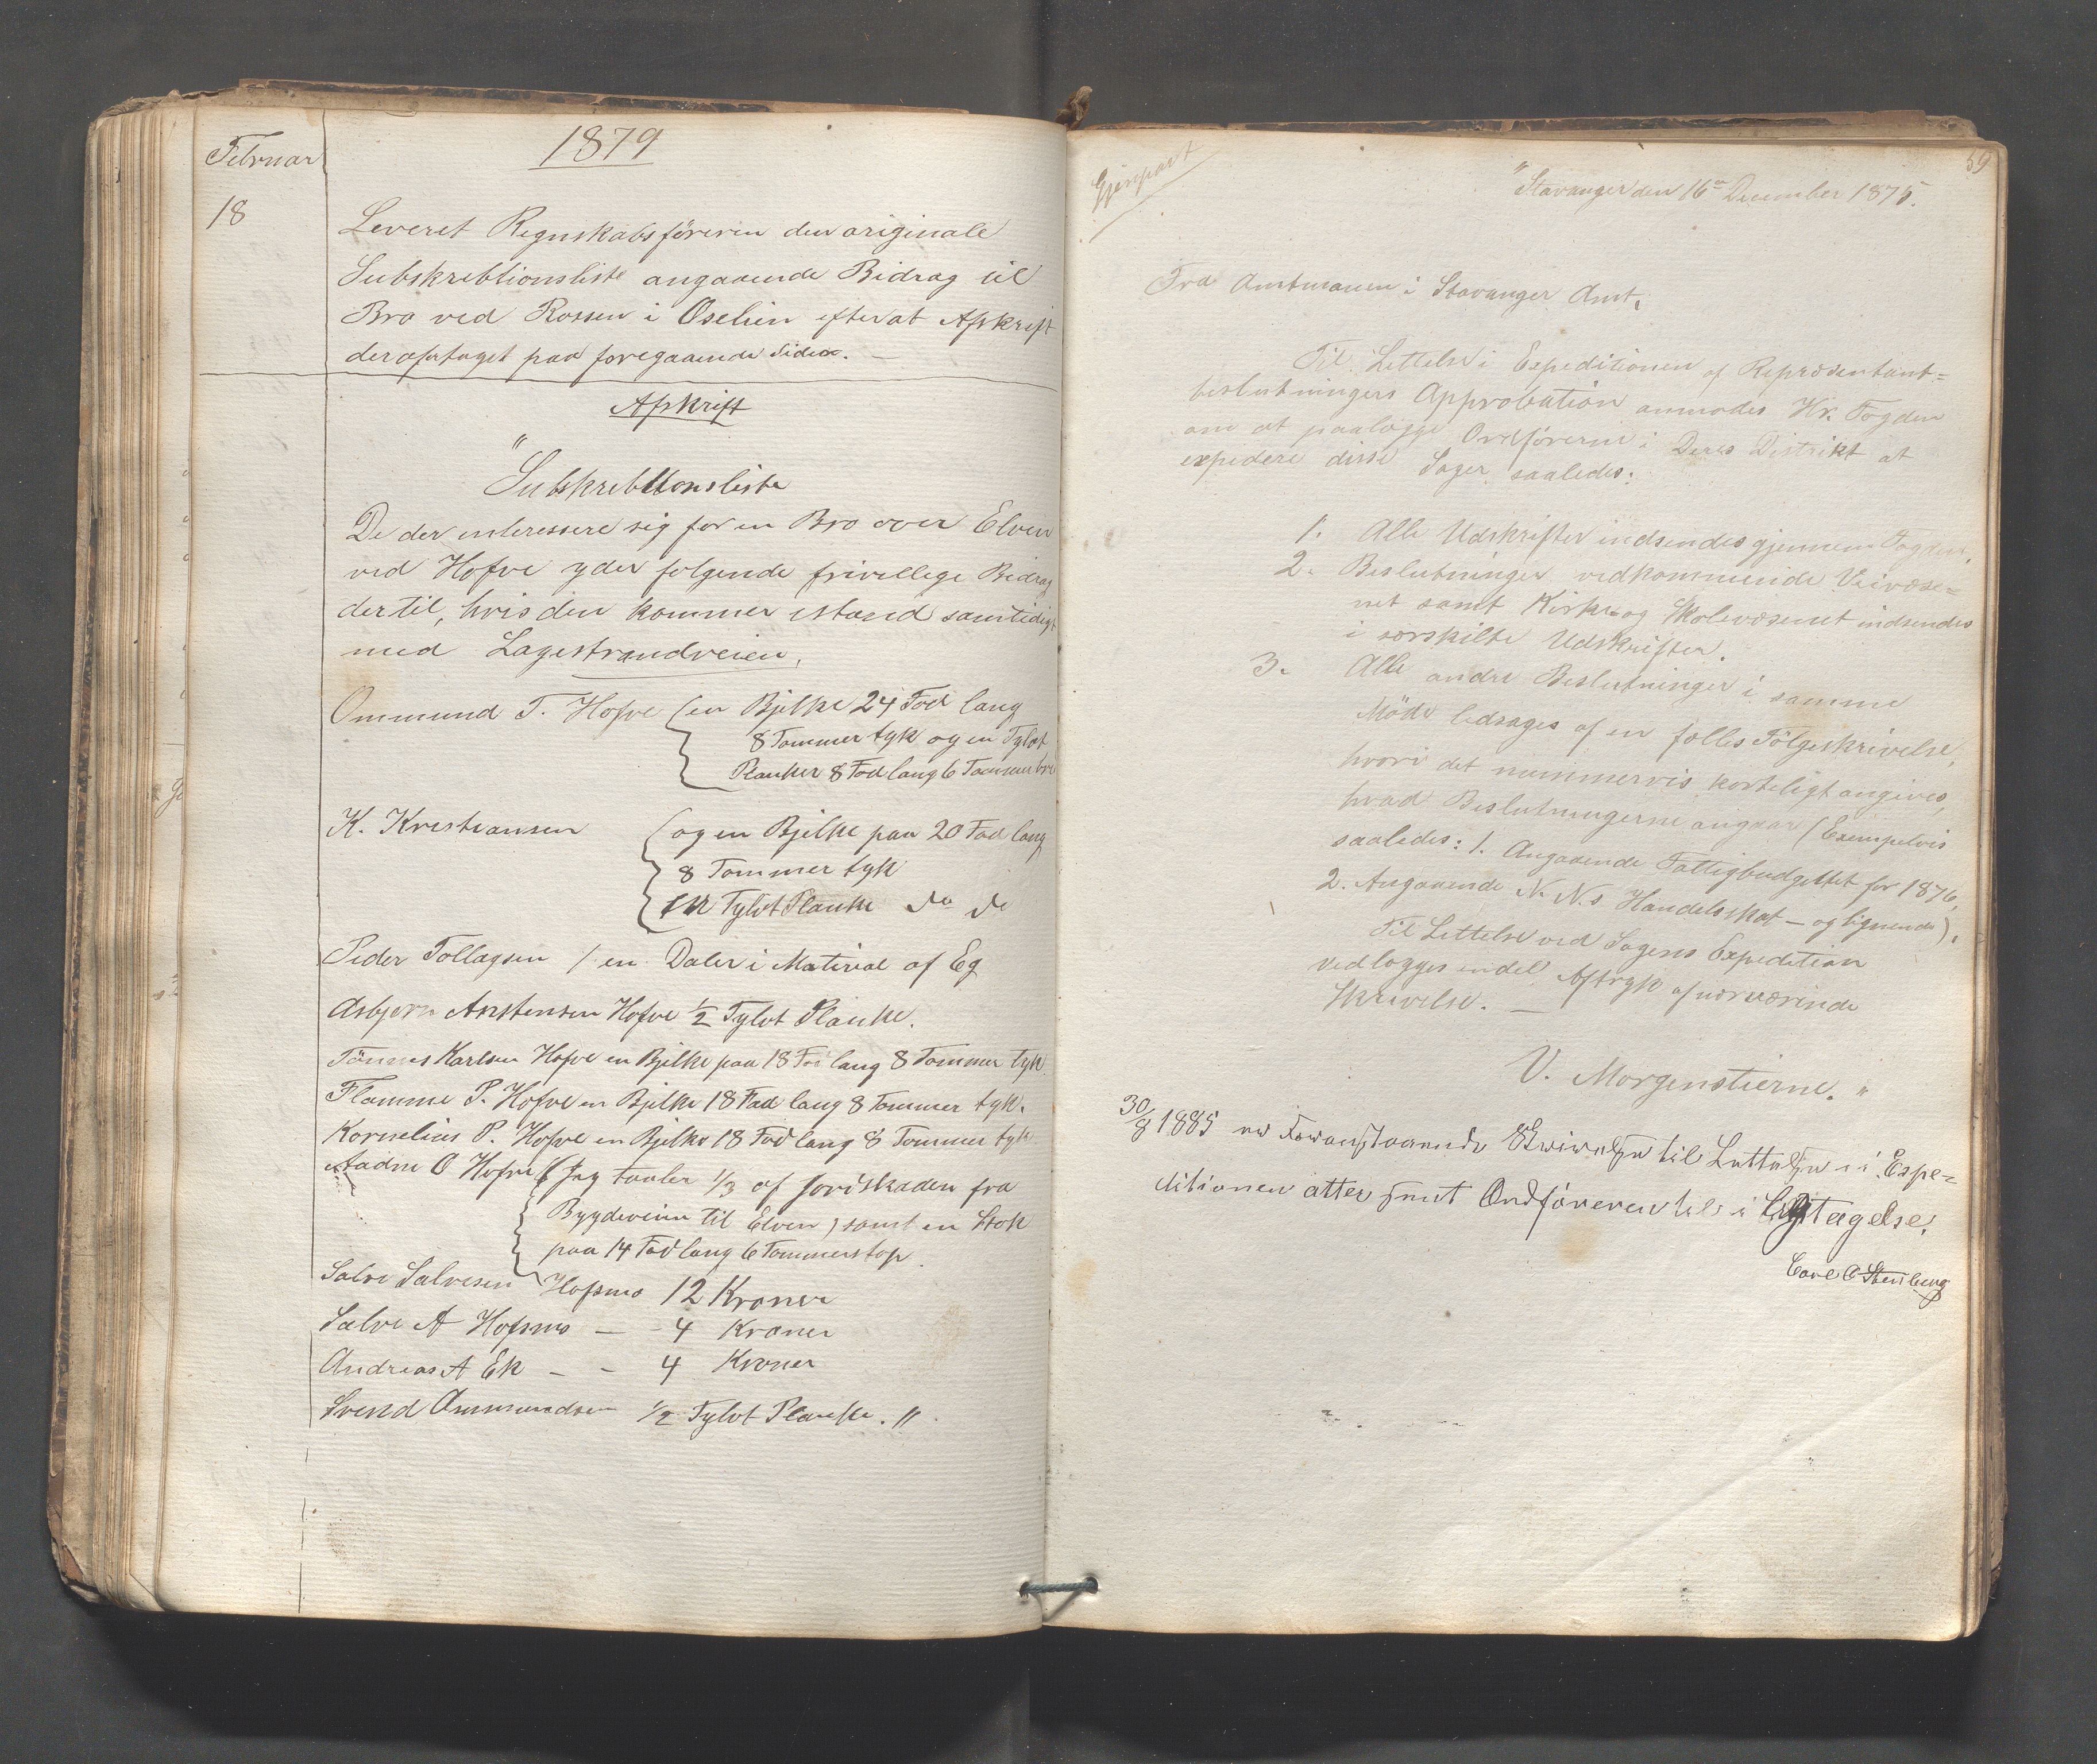 Februar
1879
18
Leveret Regnskabsföreren den originale
Subskrebtionsliste angaaende Bidrag til
Bro ved Rossen i Oselien efterat Afskrift
deraf er taget paa foregaaende Side.
Afskrift
"Subskrebtionsliste
De der interessere sig for en Bro over Elven
ved Hofve yder følgende frivillige Bidrag
dertil, hvis den kommer istand samtidigt
med Lagestrandveien,
Ommund T. Hofve (en Bjelke 24 Fod lang
8 Tommer tyk og en Tylvt
Planker 8 Fod lang 6 Tommer bre
K. Kristiansen (og en Bjelke paa 20 Fod lang
8 Tommer tyk
en Tylvt Planke do do
Peder Tollagsen / en Daler i Material af Eg
Asbjørn Anstensen Hofve 1/2 Tylvt Planke.
Tönnes Karlsen Hofve en Bjelke paa 18 Fod lang 8 Tommer tyk
Flamme P. Hofve en Bjelke 18 Fod lang 8 Tommer tyk.
Kornelius P. Hofve en Bjelke 18 Fod lang 8 Tommer tyk
Aadne O Hofve (Jeg taaler 1/3 af Jordskaden fra
Bygdeveien til Elven, samt en Stok
paa 14 Fod lang 6 Tommerstop.
Salve Salvesen Hofsmo 12 Kroner
Salve A Hofsmo – – 4 Kroner
Andreas A Ek – – 4 Kroner
Svend Ommundsen 1/2 Tylvt Planke. "
59
Gjenpart
"Stavanger den 16de December 1875.
Fra Amtmanden i Stavanger Amt,
Til Lettelse i Expeditionen af Repræsentant=
beslutningers Approbation anmodes Hr. Fogden
om at paalægge Ordförerne i Deres Distrikt at
expedere disse Sager saaledes:
1. Alle Udskrifter indsendes gjennem Fogden,
2. Beslutninger vedkommende Veivæse=
net samt Kirke og Skolevæsenet indsendes
i særskilte Udskrifter.
3. Alle andre Beslutninger i samme
Möde ledsages af en fælles Fölgeskrivelse,
hvori det nummervis korteligt angives,
hvad Beslutningerne angaar (Exempelvis
saaledes: 1. Angaaende Fattigbudgettet for 1876,
2. Angaaende N. N.s Handelsskat – og lignende),
Til Lettelse ved Sagens Expedition
vedlægges endel Aftryk af nærværende
Skrivelse. –
V. Morgenstierne. "
30/8 1885 er Foranstaaende Skrivelse til Lettelse i Expe=
ditionen atter sendt Ordföreren til Iagttagelse.
Carl O Stenberg